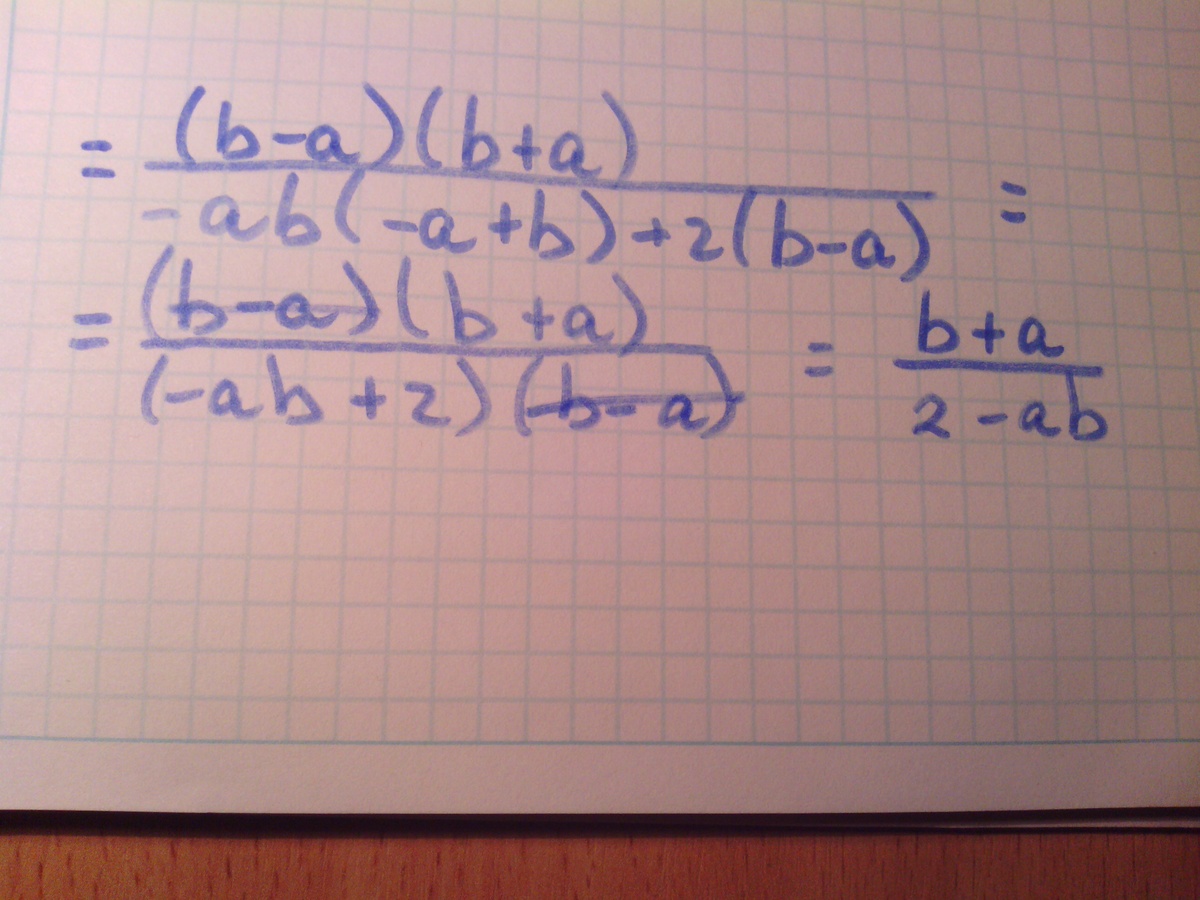 = (b-a)(b+a) / -ab(-a+b)+2(b-a) =
= (b-a)(b+a) / (-ab+2)(b-a) = b+a / 2-ab